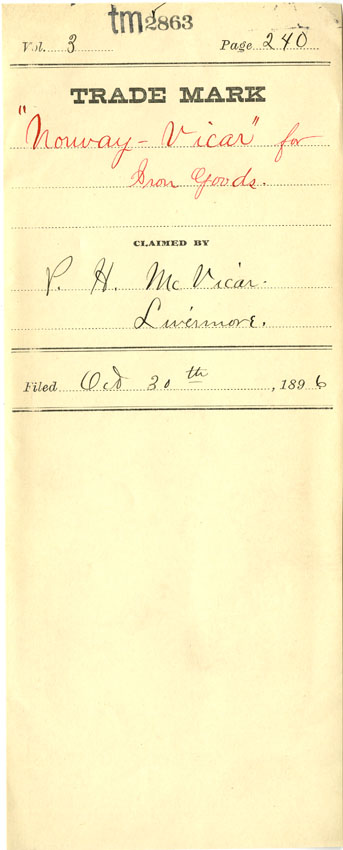 tm2863
Vol. 3 Page 240
TRADE MARK
"Norway - Vicar" for
Iron Goods.
CLAIMED BY
P. H. McVicar.
Livermore.
Filed Oct 30th, 1896